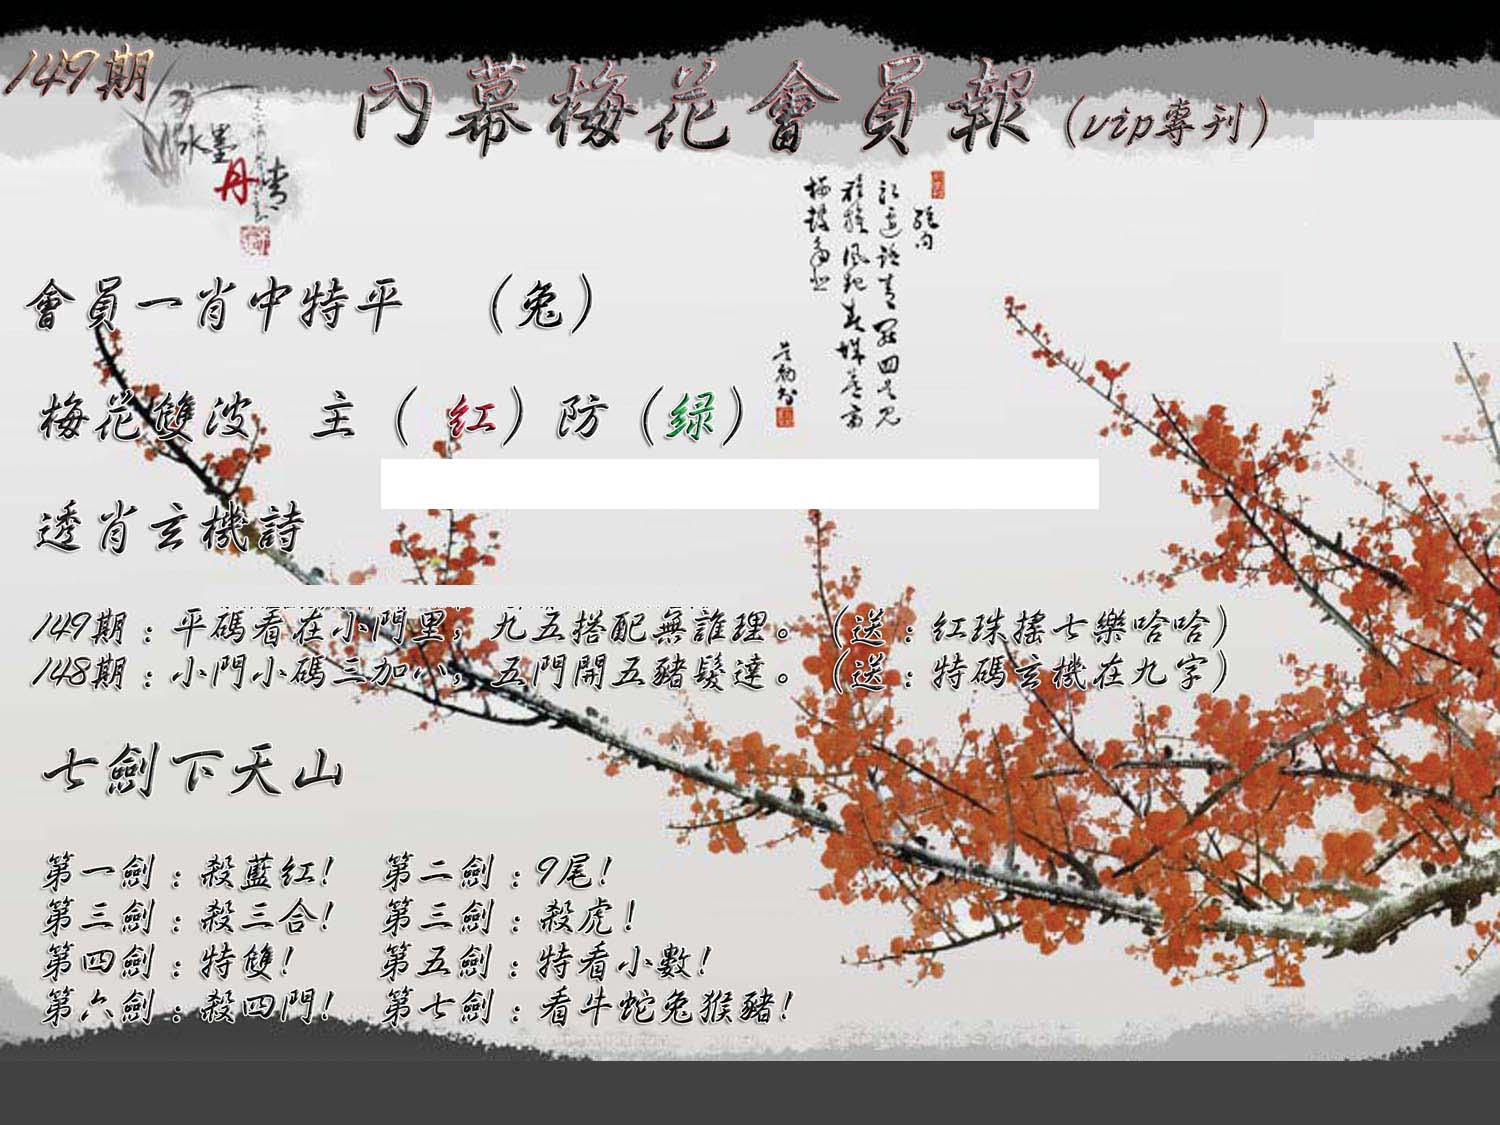 149期
內幕梅花會員報(vip專刊)
水墨
丹青
會員一肖中特平 (兔)
梅花雙波 主(紅)防(绿)
透肖玄機詩
149期：平碼看在小門里，九五搭配無誰理。(送：紅珠搖七樂哈哈)
148期：小門小碼三加小，五門開五豬髮達。(送：特碼玄機在九字)
七劍下天山
第一劍：殺藍紅! 第二劍：9尾!
第三劍：殺三合! 第三劍：殺虎!
第四劍：特雙! 第五劍：特看小數!
第六劍：殺四門! 第七劍：看牛蛇兔猴豬!